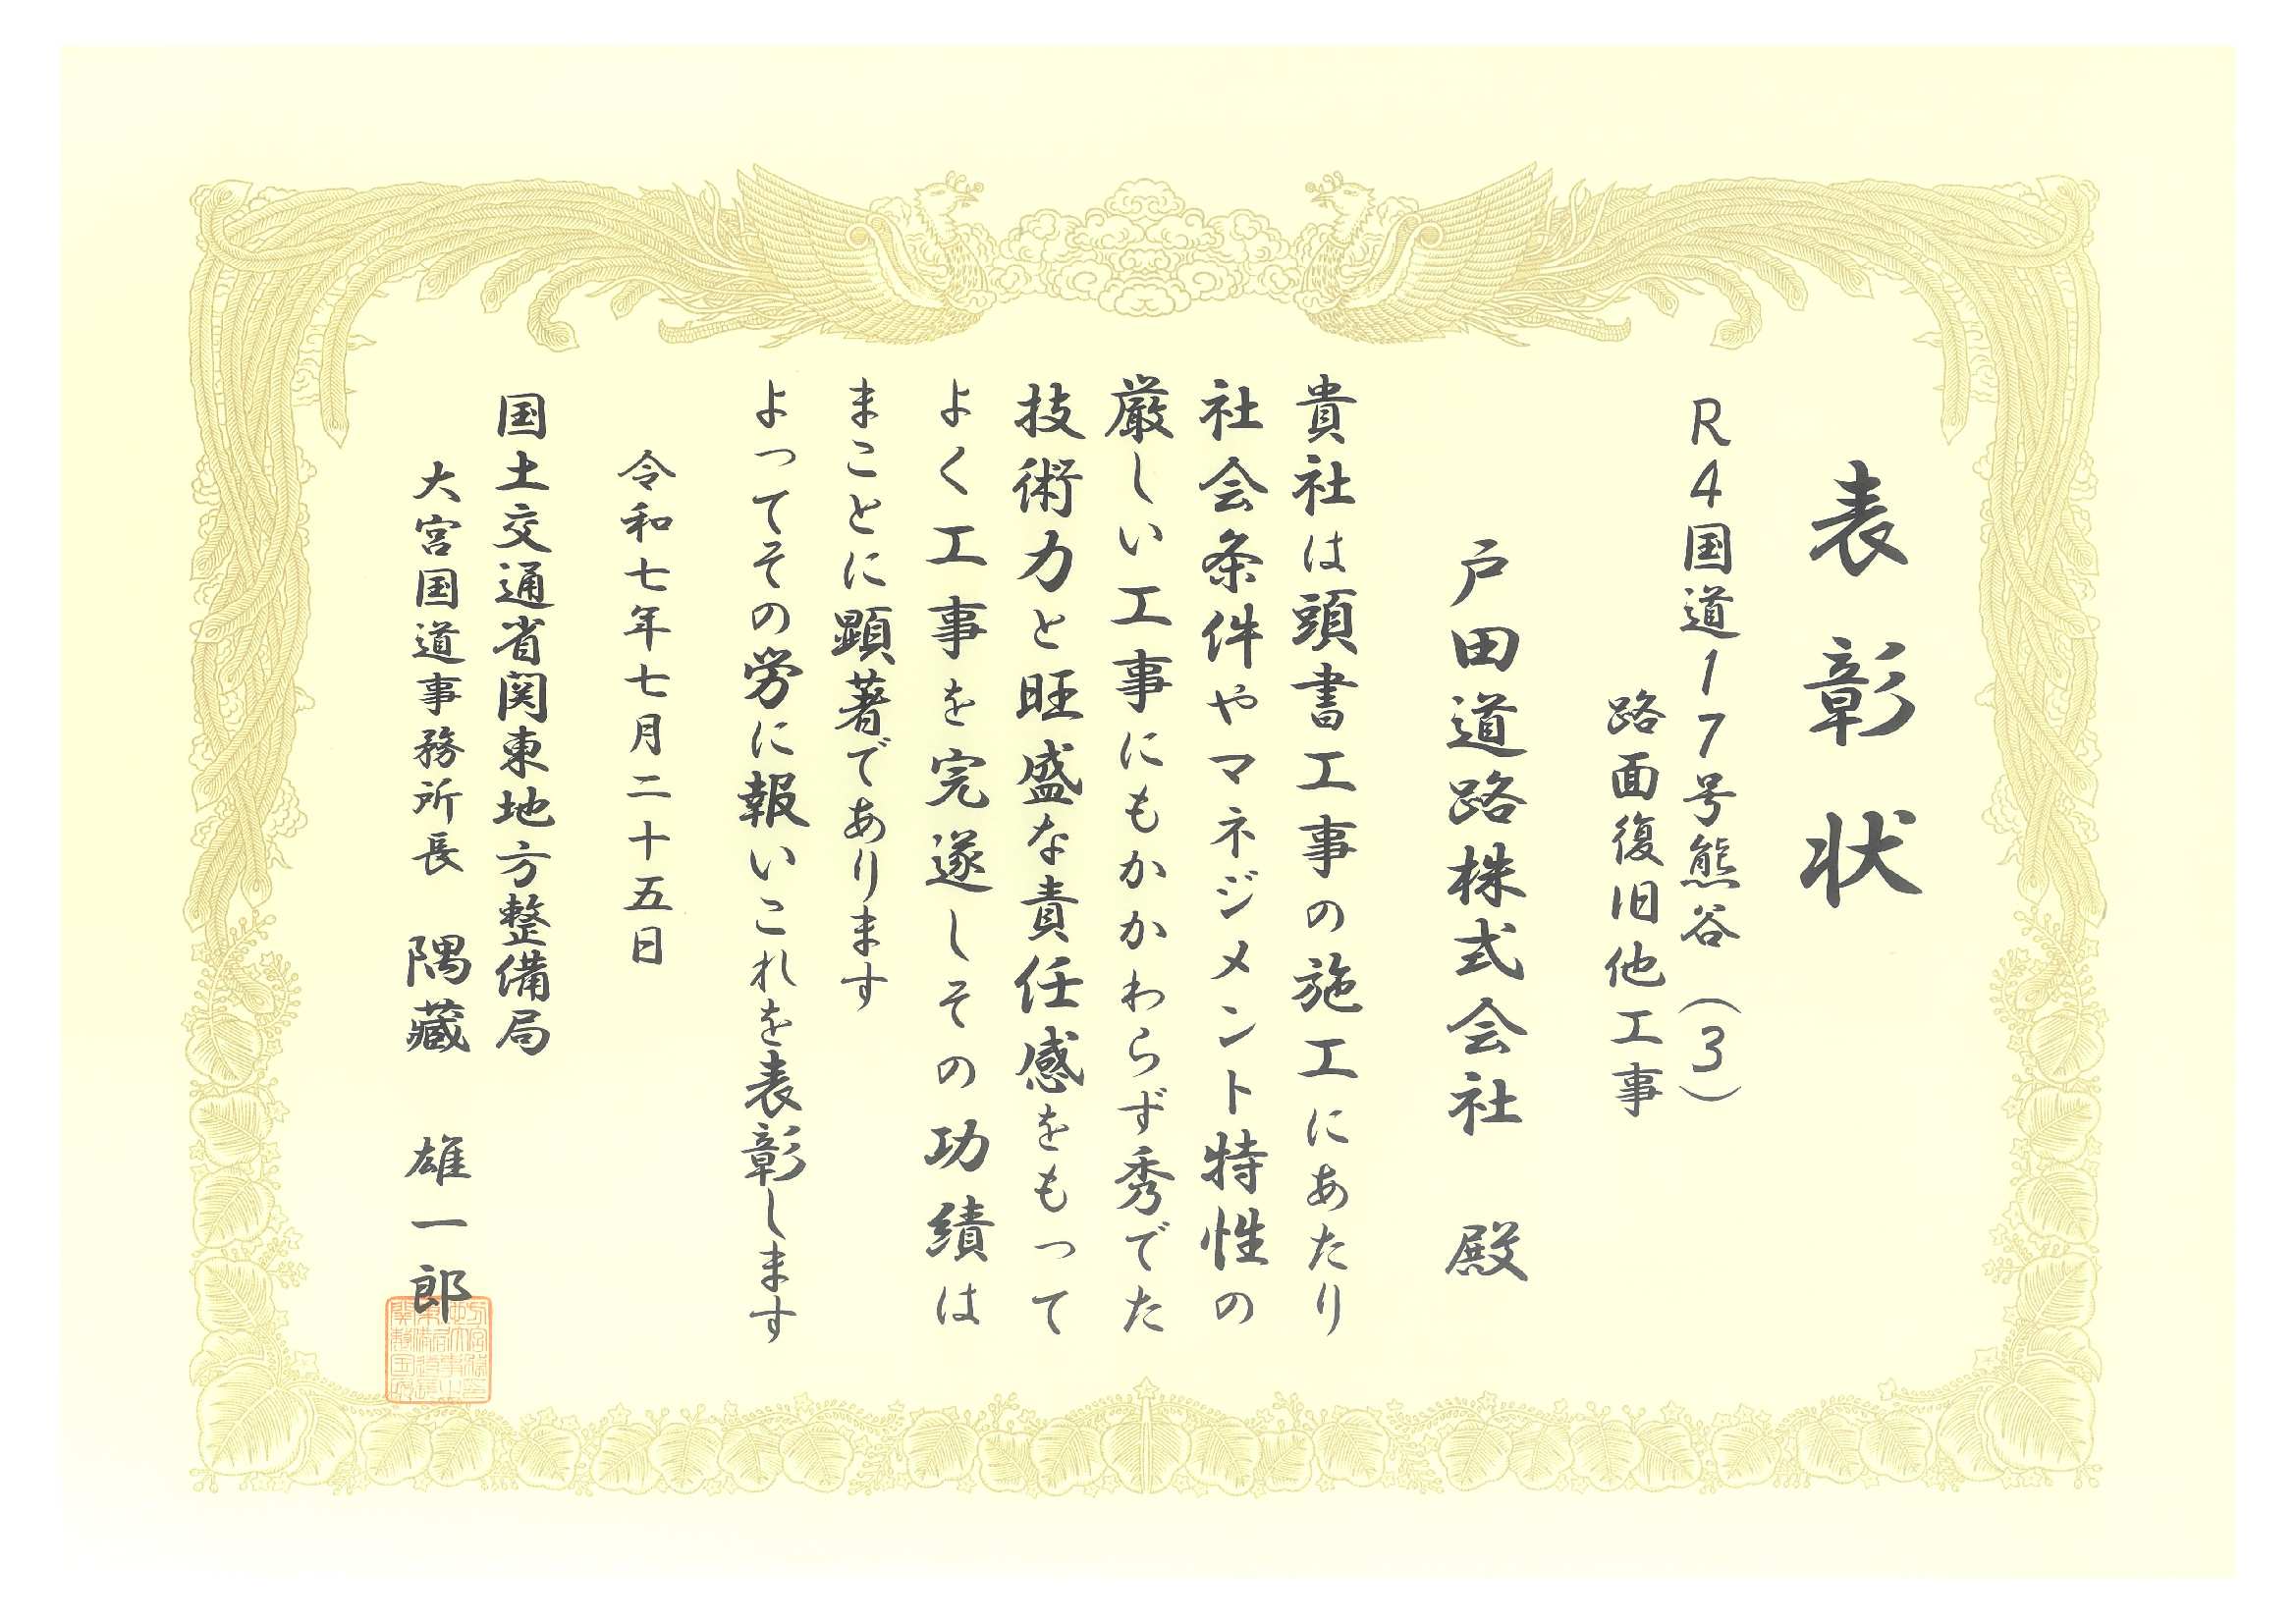 表彰状
R4国道17号熊谷(3)
路面復旧他工事
戸田道路株式会社 殿
貴社は頭書工事の施工にあたり
社会条件やマネジメント特性の
厳しい工事にもかかわらず秀でた
技術力と旺盛な責任感をもって
よく工事を完遂しその功績は
まことに顕著であります
よってその労に報いこれを表彰します
令和七年七月二十五日
国土交通省関東地方整備局
大宮国道事務所長 隅藏 雄一郎